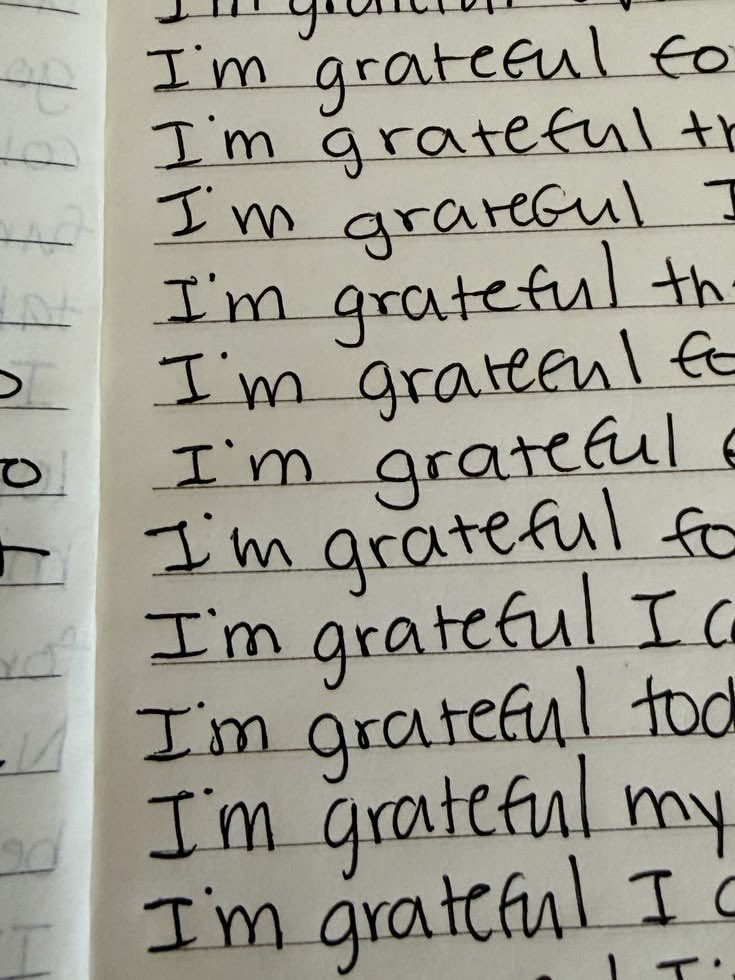 I'm grateful
I'm grateful fo
I'm grateful th
I'm grateful I
I'm grateful th
I'm grateful fo
I'm grateful
I'm grateful fo
I'm grateful I c
I'm grateful tod
I'm grateful my
I'm grateful I